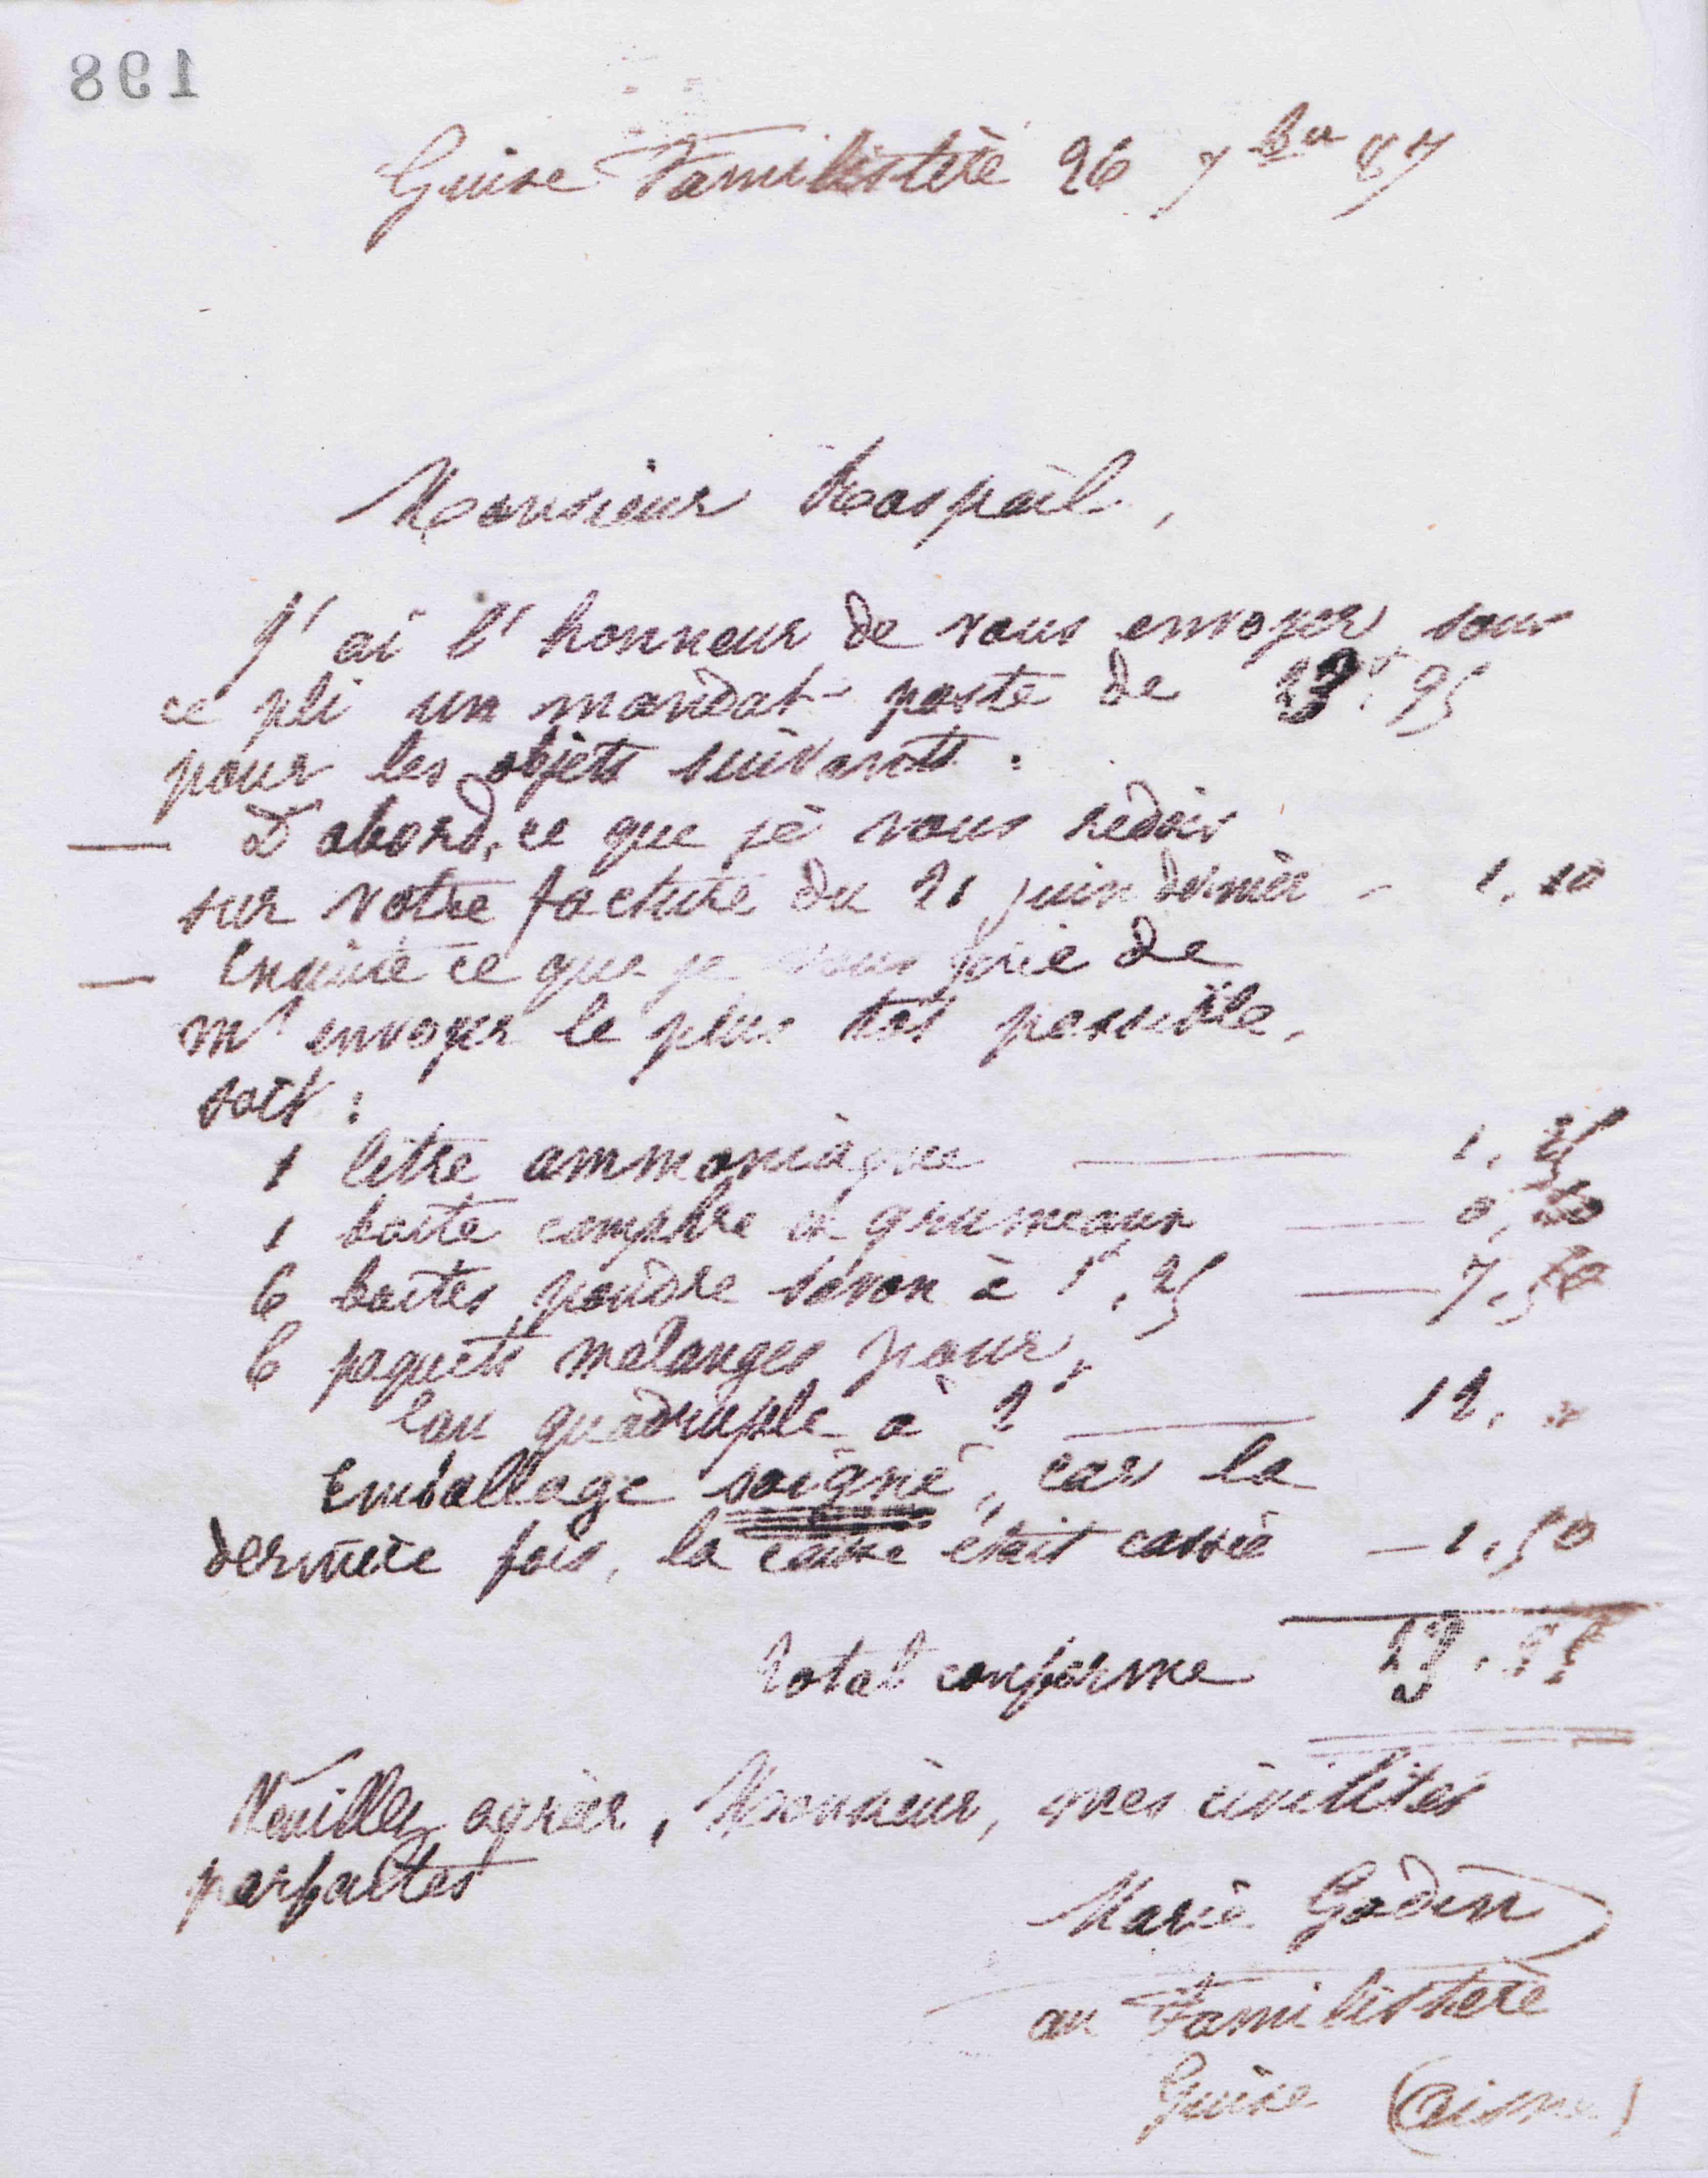 198
Guise Familistère 26 7bre 87
Monsieur Raspail,
J'ai l'honneur de vous envoyer sous
ce pli un mandat-poste de 23f. 95
pour les objets suivants :
— D'abord, ce que je vous redois
sur votre facture du 21 juin dernier - 1,10
— Ensuite ce que je vous prie de
m'envoyer le plus tôt possible,
soit :
1 litre ammoniaque — 1,25
1 boite camphre en grumeaux — 0,60
6 boites poudre savon à 1f,25 — 7,50
6 paquets mélanges pour
eau quadruple à 2f — 12, "
Emballage soigné, car la
dernière fois, la caisse était cassée — 1,50
Total conforme 23,95
Veuillez agréer, Monsieur, mes civilités
parfaites
Marie Godin
au Familistère
Guise (Aisne)